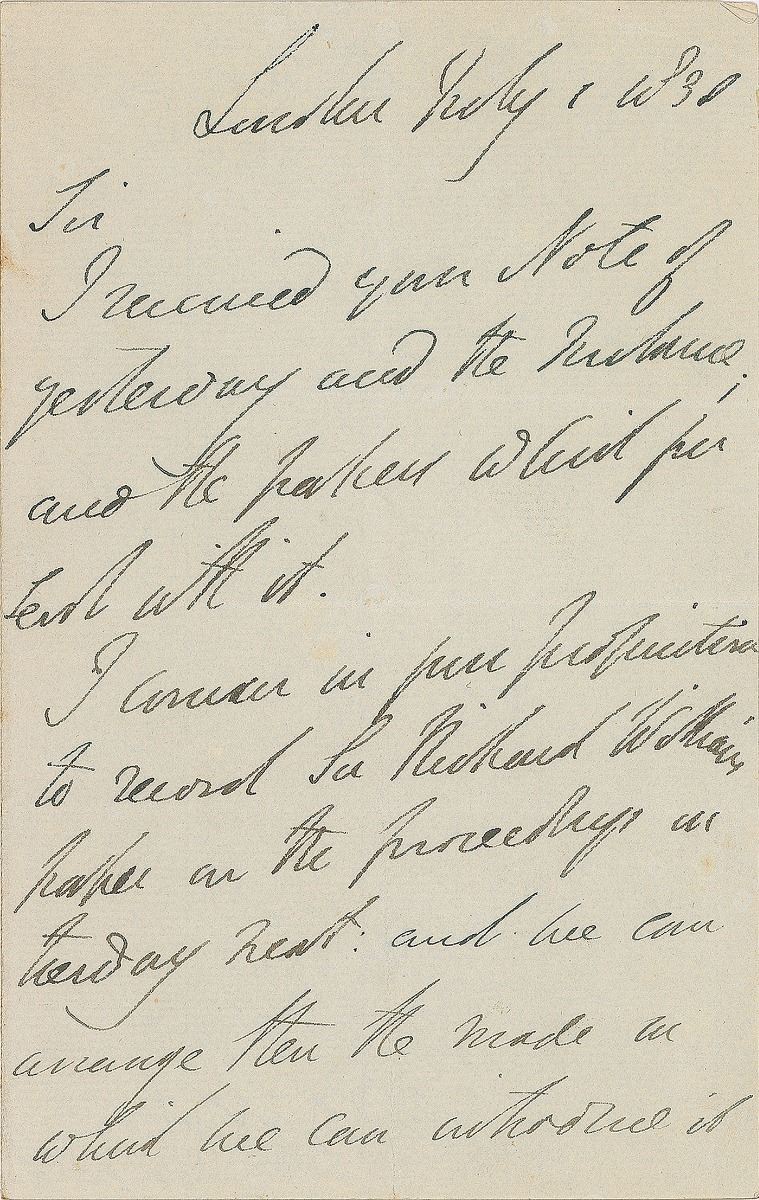 London July 1 1838
Sir
I received your Note of
yesterday and the
and the papers which you
sent with it.
I concur in your proposition
to record Sir Richard Williams
paper on the proceedings on
next: and we can
arrange then the mode in
which we can introduce it